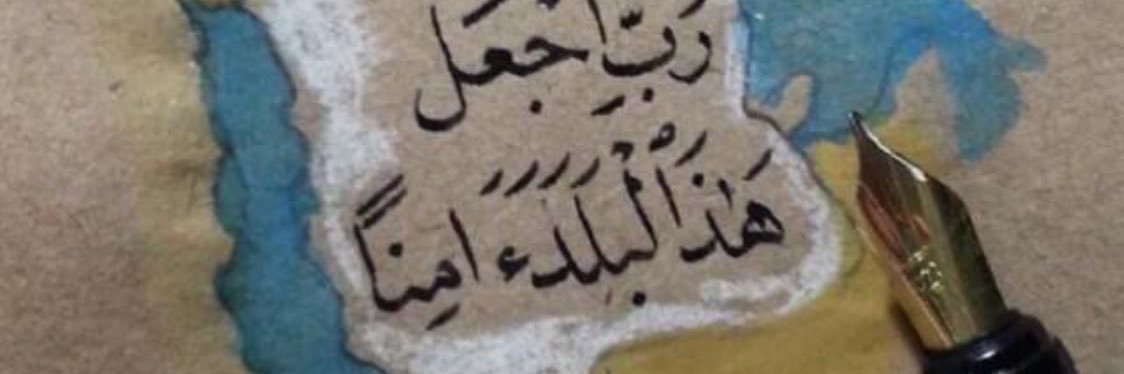 رَبِّ اجْعَل
هَٰذَا الْبَلَدَ ءَامِنًا